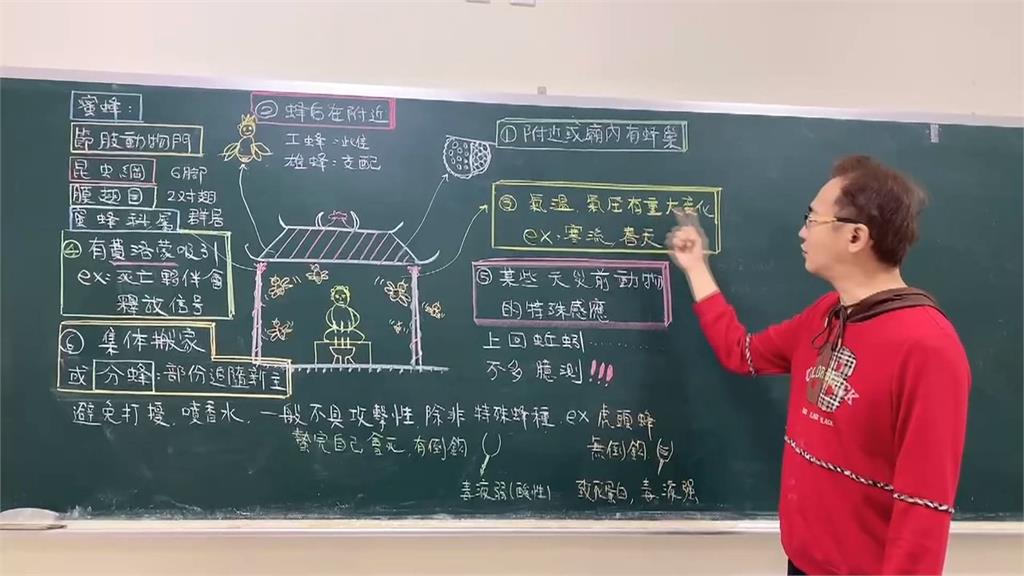 蜜蜂:
節肢動物門
昆虫綱 6腳
膜翅目 2对翅
蜜蜂科屬 群居
② 蜂后在附近
工蜂:
雄蜂:支配
① 附近或廟內有蜂巢
③ 氣溫、氣压有重大変化
ex:寒流、春天
④ 有費洛蒙吸引
ex:死亡夥伴會
釋放信号
穴
⑤ 某些天災前動物
的特殊感應
上回蚯蚓…………
不多臆測!!!
⑥ 集体搬家
或 分蜂:部份追隨新王
避免打擾、噴香水、一般不具攻擊性 除非 特殊蜂種 ex 虎頭蜂
螫完自己會死,有倒鈎
無倒鈎
毒液弱(酸性)
毒液強